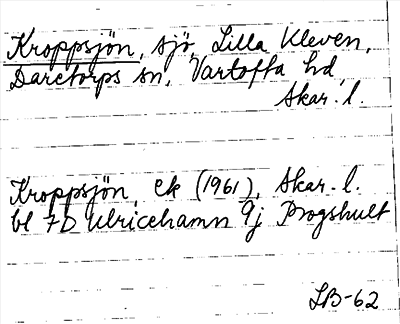 Kroppsjön, sjö, Lilla Kleven,
Daretorps sn, Vartofta hd,
Skar. l.
Kroppsjön, ek (1961), Skar. l.
bl 7D Ulricehamn 9j Progshult
LB-62